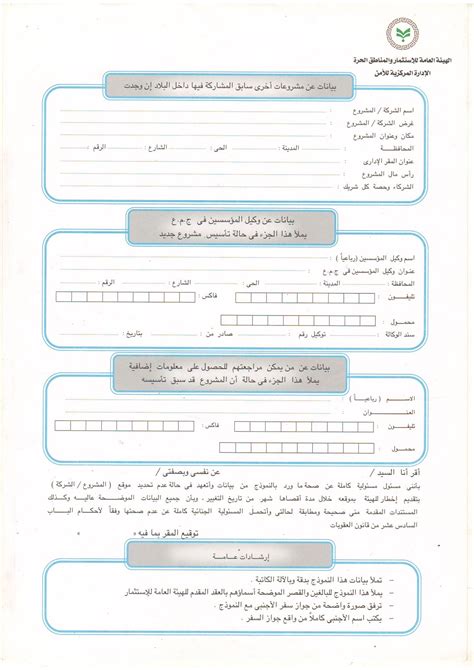 الهيئة العامة للإستثمار والمناطق الحرة
الإدارة المركزية للأمن
بيانات عن مشروعات أخرى سابق المشاركة فيها داخل البلاد إن وجدت
اسم الشركة / المشروع :
غرض الشركة / المشروع :
مكان وعنوان المشروع :
المحافظة : المدينة : الحى : الشارع : الرقم :
عنوان المقر الإدارى :
رأس مال المشروع :
الشركاء وحصة كل شريك :
بيانات عن وكيل المؤسسين فى ج.م.ع
يملأ هذا الجزء فى حالة تأسيس مشروع جديد
اسم وكيل المؤسسين (رباعياً) :
عنوان وكيل المؤسسين فى ج.م.ع :
المحافظة : المدينة : الحى : الشارع : الرقم :
تليفون : فاكس :
محمول :
سند الوكالة : توكيل رقم : صادر من : بتاريخ :
بيانات عن من يمكن مراجعتهم للحصول على معلومات إضافية
يملأ هذا الجزء فى حالة أن المشروع قد سبق تأسيسه
الاسم (رباعياً) :
العنوان :
تليفون : فاكس :
محمول :
أقر أنا السيد / عن نفسى وبصفتى /
بأننى مسئول مسئولية كاملة عن صحة ما ورد بالنموذج من بيانات وأتعهد فى حالة عدم تحديد موقع (المشروع / الشركة)
بتقديم إخطار للهيئة بموقعه خلال مدة أقصاها شهر من تاريخ التغيير. وبأن جميع البيانات الموضحة عاليه وكذلك
المستندات المقدمة منى صحيحة ومطابقة لحالتى وأتحمل المسئولية الجنائية كاملة عن عدم صحتها وفقاً لأحكام الباب
السادس عشر من قانون العقوبات
توقيع المقر بما فيه
إرشادات عامة
– تملأ بيانات هذا النموذج بدقة وبالآلة الكاتبة .
– يملأ هذا النموذج للبالغين والقصر الموضحة أسماؤهم بالعقد المقدم للهيئة العامة للإستثمار
– ترفق صورة واضحة من جواز سفر الأجنبى مع النموذج .
– يكتب اسم الأجنبى كاملاً من واقع جواز السفر .